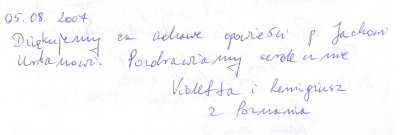 05.08.2007
Dziękujemy za ciekawe opowieści p. Jackowi
Urbanowi. Pozdrawiamy serdecznie
Violetta i Remigiusz
z Poznania